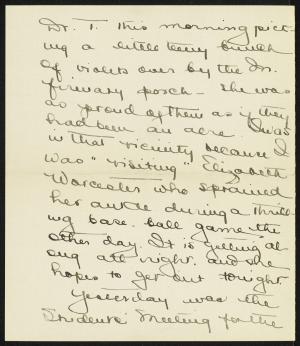 Dr. T. this morning pick-
ing a little teeny bunch
of violets over by the In-
firmary porch - She was
as proud of them as if they
had been an acre. I was
in that vicinity because I
was "visiting" Elizabeth
Worcester who sprained
her ankle during a thrill-
ing base-ball game the
other day. It is getting al-
ong all right, and she
hopes to get out tonight.
Yesterday was the
Students' Meeting for the